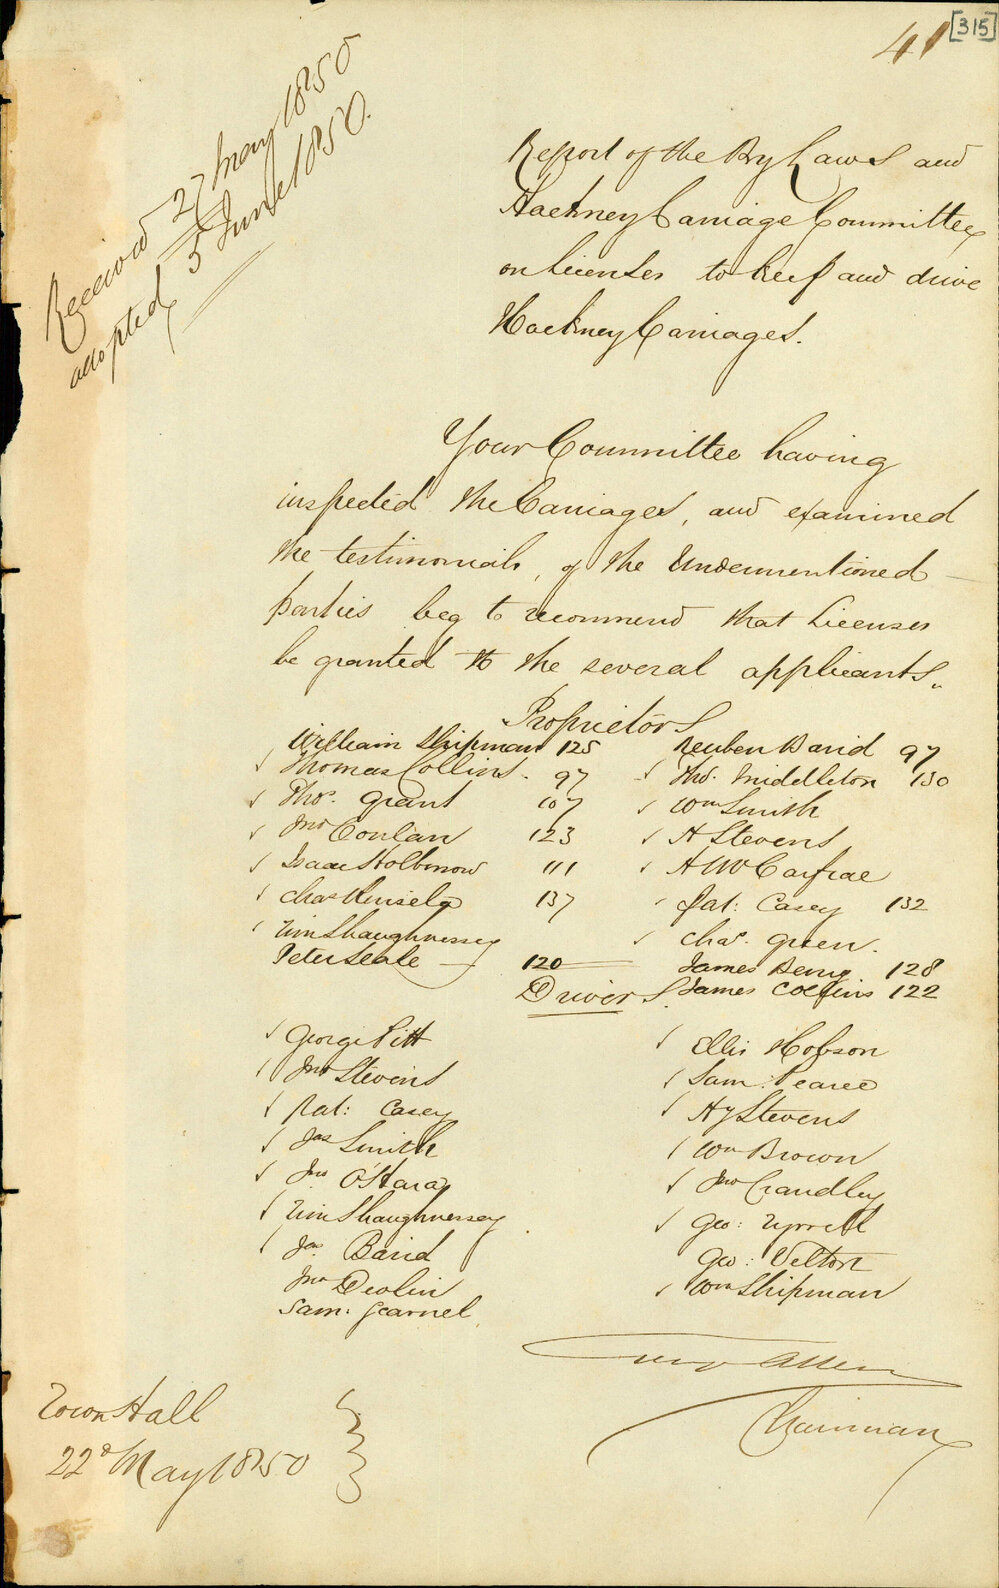 41 [315]
Received 27 May 1850
adopted 5 June 1850.
Report of the By Laws and
Hackney Carriage Committee
on licenses to keep and drive
Hackney Carriages.
Your Committee having
inspected the Carriages, and examined
the testimonials, of the Undermentioned
parties beg to recommend that Licenses
be granted to the several applicants.
Proprietors
William Shipman 125 Reuben David 97
Thomas Collins - 97 Tho.s Middleton 130
Tho.s Grant 107 Wm Smith
Jno Conlan 123 H Stevens
Isaac 111 A W Carfrae
Chas 137 Pat: Casey 132
Tim Shaughnessey Cha.s Green.
Peter Seale 120 James Berry. 128
Drivers. James Collins 122
George Pitt Ellis Hobson
Jno Stevens Sam: Pearce
Pat: Casey Hy Stevens
Jas Smith Wm Brown
Jno O'Hara Jno Crandley
Tim Shaughnessey Geo: Tyrrell
Jas. David Geo: Velton
Jno Devlin Wm Shipman
Sam: Gearnel
Allen
Chairman
Town Hall
22d May 1850